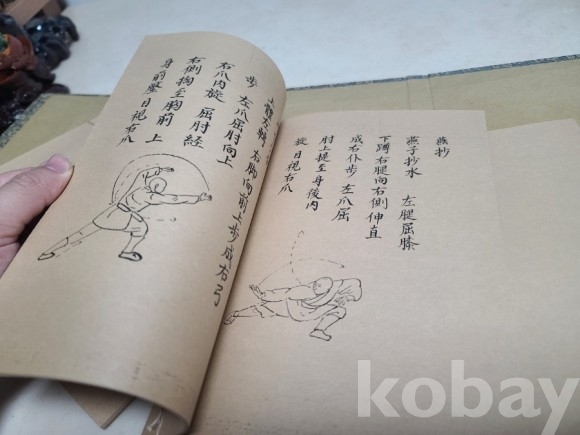 燕抄
燕子抄水 左腿屈膝
下蹲右腿向右側伸直
成右仆步 左爪屈
肘上提至身後内
旋 目視右爪
右脚向前上步成右弓
步 左爪屈肘向上
右爪内旋 屈肘經
右側掏至胸前 上
身前 目視右爪
kobay